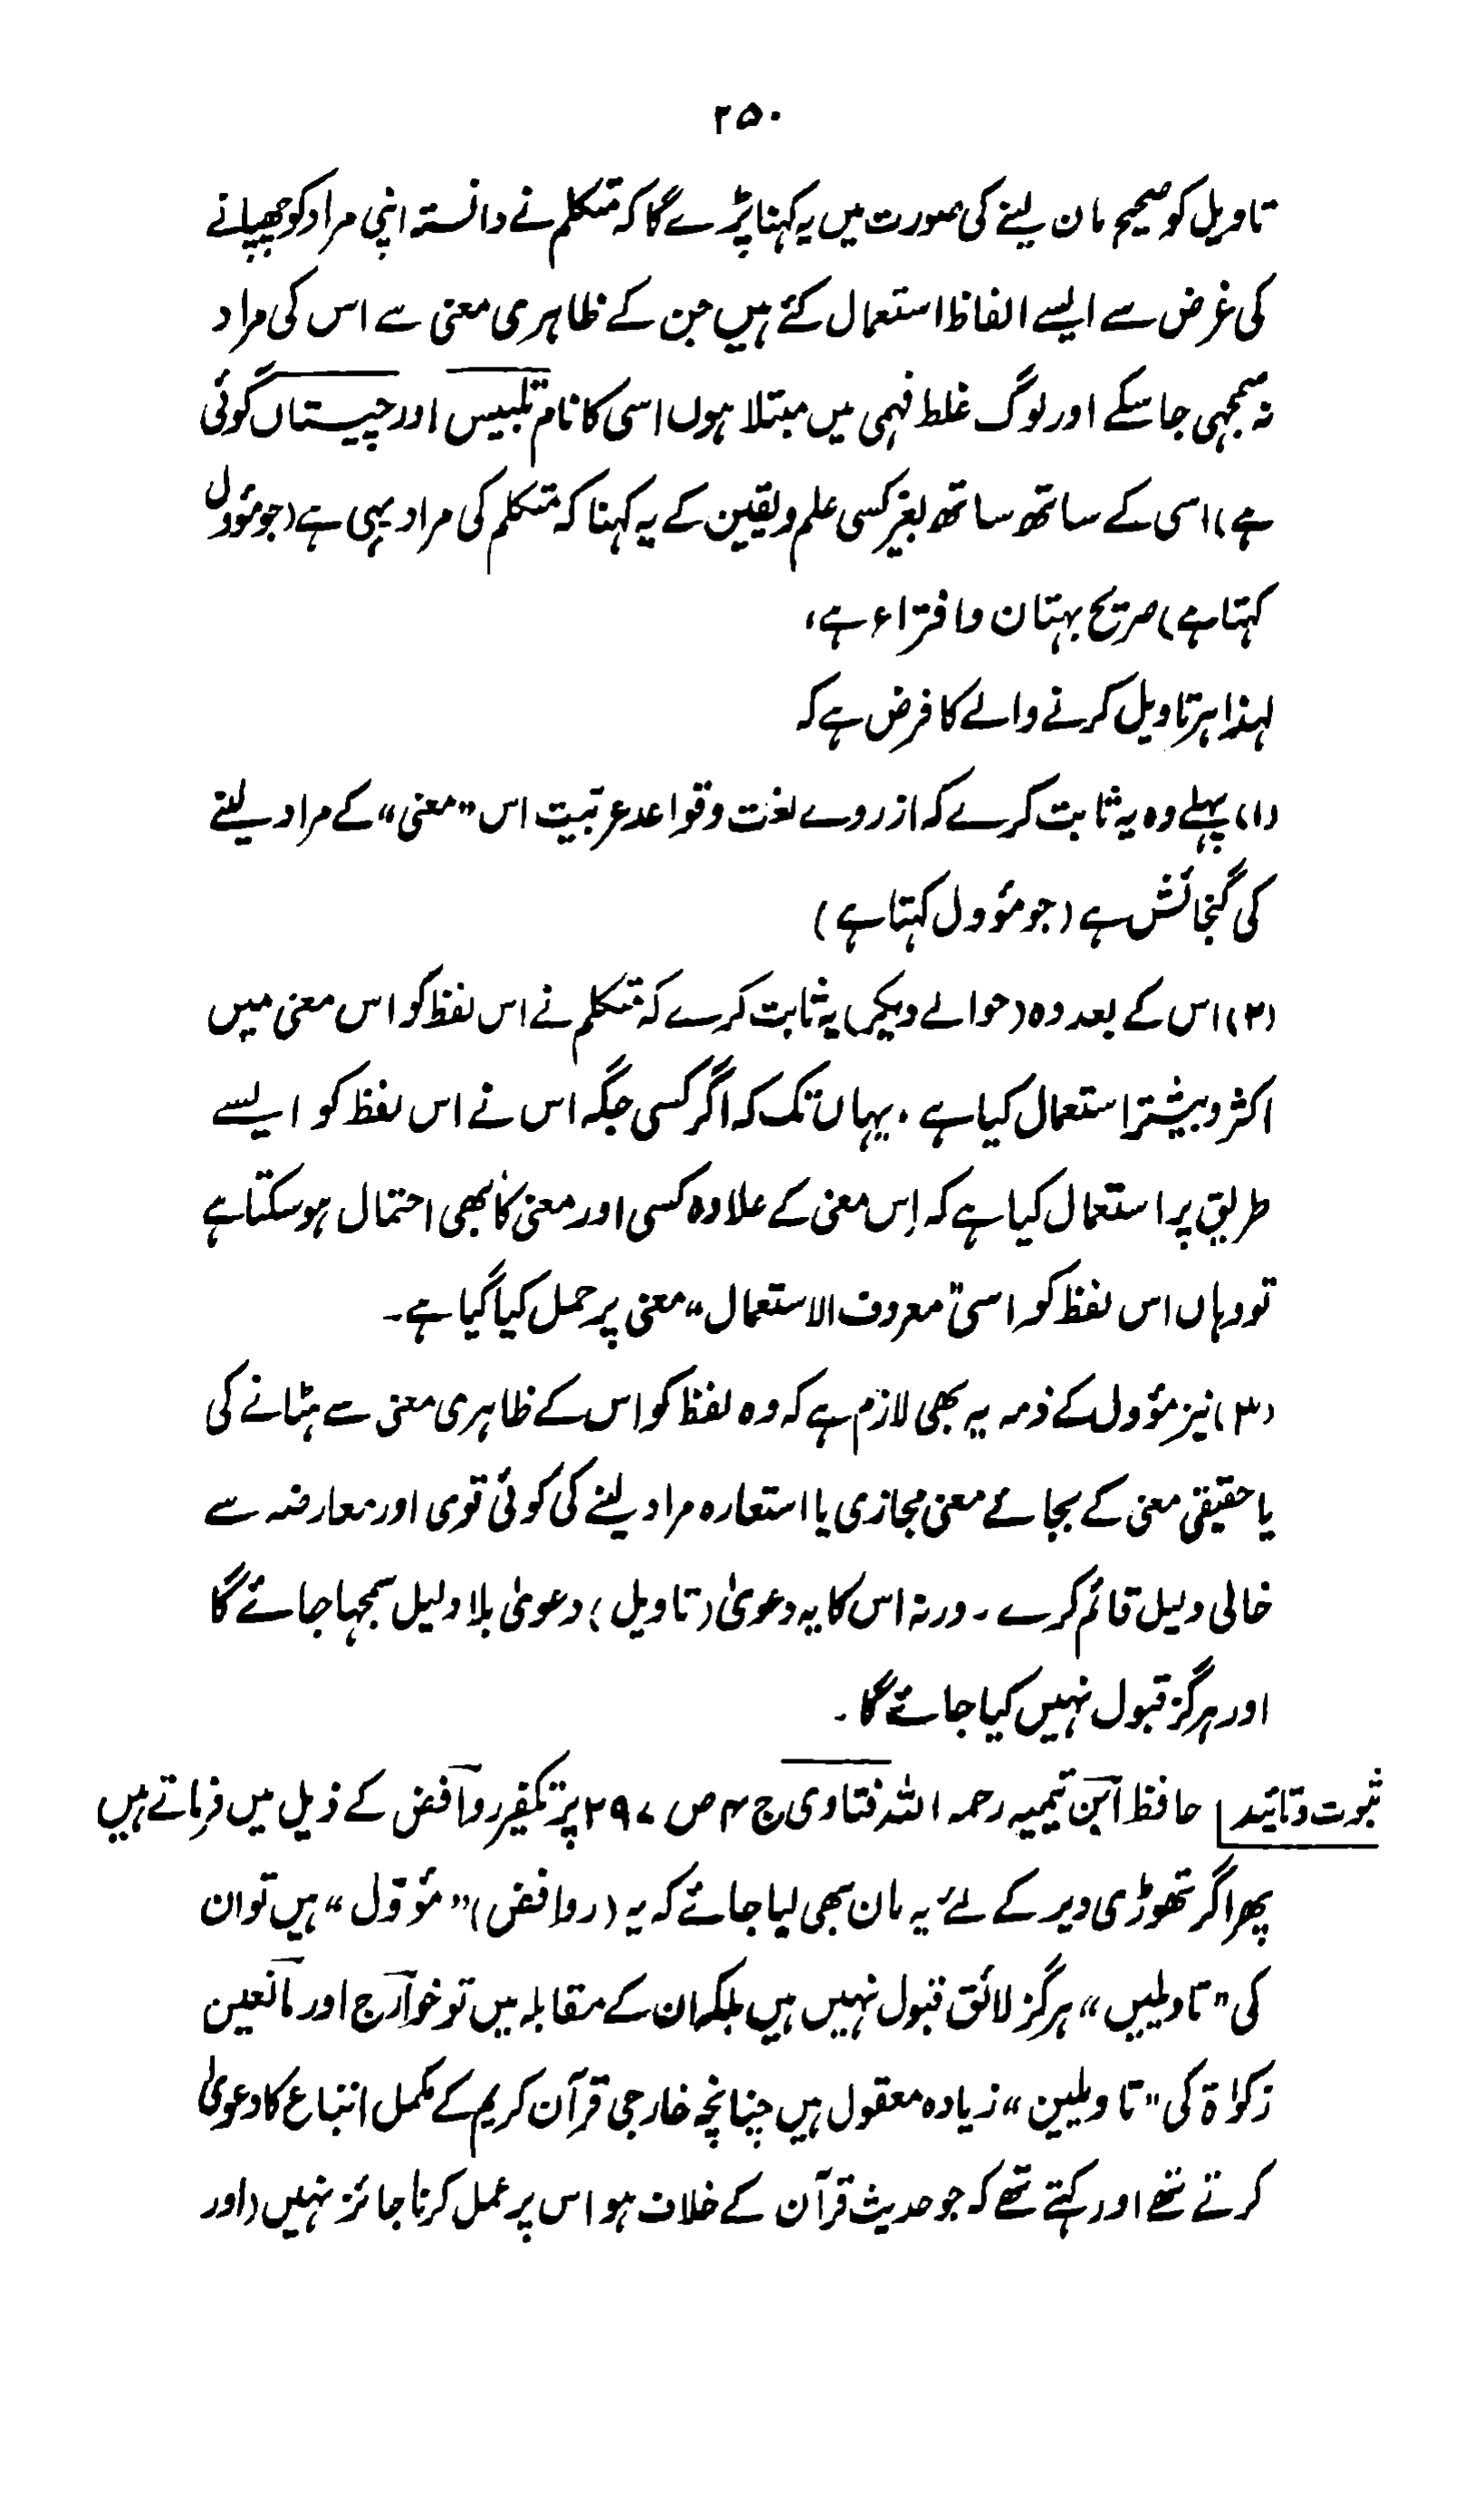 ۲۵۰
تاویل کو صحیح مان لینے کی صورت میں یہ کہنا پڑے گا کہ متکلم نے دانستہ اپنی مراد کو چھپانے
کی غرض سے ایسے الفاظ استعمال کئے ہیں جن کے ظاہری معنی سے اس کی مراد
نہ سمجھی جا سکے اور لوگ غلط فہمی میں مبتلا ہوں اسی کا نام تلبیس اور چیستاں گوئی
ہے، اسی کے ساتھ ساتھ بغیر کسی علم و یقین کے یہ کہنا کہ متکلم کی مراد یہی ہے (جو مؤول
کہتا ہے) صریح بہتان و افتراء ہے،
لہذا ہر تاویل کرنے والے کا فرض ہے کہ
(۱) پہلے وہ یہ ثابت کرے کہ از روے لغت و قواعد عربیت اس "معنی" کے مراد لینے
کی گنجائش ہے (جو مؤول کہتا ہے)
(۲) اس کے بعد وہ (حوالے دیکر) یہ ثابت کرے کہ متکلم نے اس لفظ کو اس معنی میں
اکثر و بیشتر استعمال کیا ہے ۔ یہاں تک کہ اگر کسی جگہ اس نے اس لفظ کو ایسے
طریق پر استعمال کیا ہے کہ اِس معنی کے علاوہ کسی اور معنی کا بھی احتمال ہو سکتا ہے
تو وہاں اس لفظ کو اسی "معروف الاستعمال" معنی پر حمل کیا گیا ہے۔
(۳) نیز مؤول کے ذمہ یہ بھی لازم ہے کہ وہ لفظ کو اس کے ظاہری معنی سے ہٹانے کی
یا حقیقی معنی کے بجائے معنی مجازی یا استعارہ مراد لینے کی کوئی قوی اور معارضہ سے
خالی دلیل قائم کرے ۔ ورنہ اس کا یہ دعویٰ (تاویل) دعویٰ بلا دلیل سمجھا جائے گا
اور ہرگز قبول نہیں کیا جائے گا۔
ثبوت و تائید حافظ ابن تیمیہ رحمہ اللہ فتاوی ج ۴ ص ۲۹۷ پر تکفیر روافض کے ذیل میں فرماتے ہیں
پھر اگر تھوڑی دیر کے لئے یہ مان بھی لیا جائے کہ یہ (روافض) "مؤول" ہیں تو ان
کی "تاویلیں" ہرگز لائق قبول نہیں ہیں بلکہ ان کے مقابلہ میں تو خوارج اور مانعین
زکواۃ کی "تاویلیں" زیادہ معقول ہیں چنانچہ خارجی قرآن کریم کے مکمل اتباع کا دعویٰ
کرتے تھے اور کہتے تھے کہ جو حدیث قرآن کے خلاف ہو اس پر عمل کرنا جائز نہیں (اور